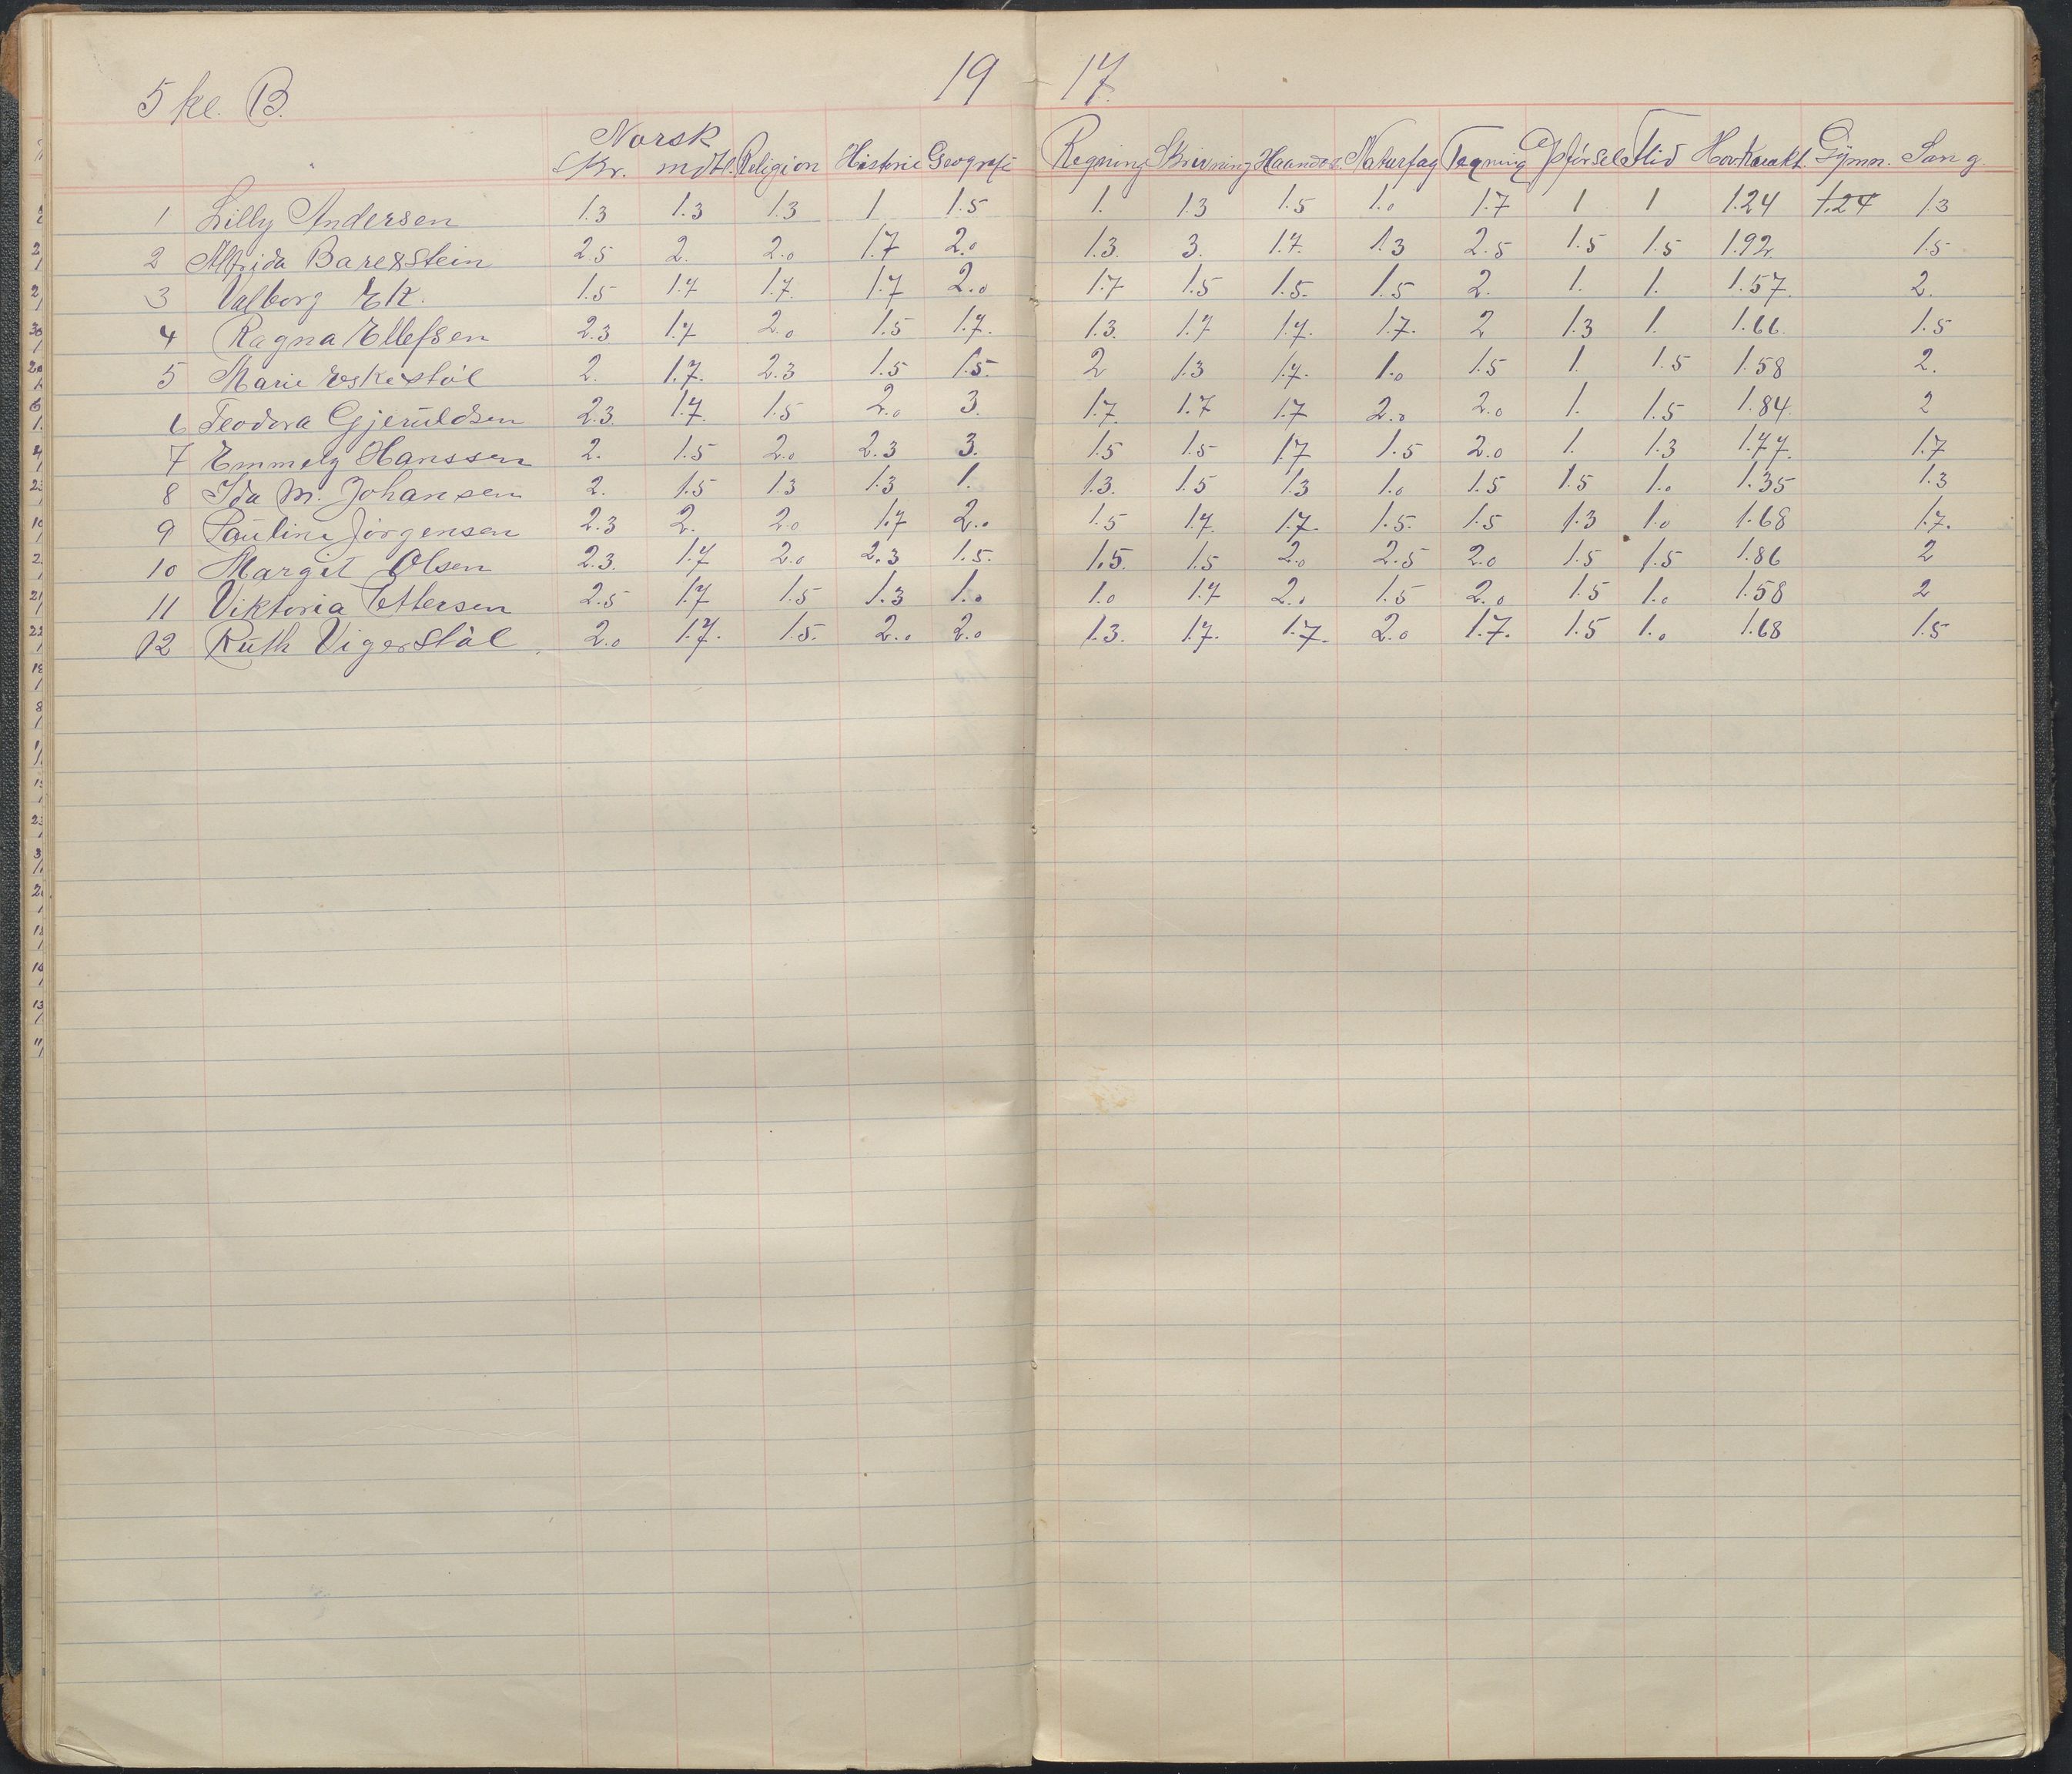 5 kl. B. 1917.
Norsk
Skr. mdtl. Religion Historie Geografi Regning Skrivning Haanda. Naturfag Tegning Opførsel Flid Hovkarakt. Gymn. Sang
1 Lilly Andersen 1.3 1.3 1.3 1 1.5 1. 1.3 1.5 1.0 1.7 1 1 1.24 1.24 1.3
2 Alfrida Barexstein 2.5 2. 2.0 1.7 2.0 1.3. 3. 1.7. 1.3 2.5 1.5 1.5 1.92. 1.5
3 Valborg Ek. 1.5 1.7 1.7. 1.7 2.0 1.7 1.5 1.5. 1.5 2. 1. 1. 1.57. 2.
4 Ragna Ellefsen 2.3 1.7 2.0 1.5 1.7. 1.3. 1.7 1.7. 1.7. 2 1.3 1. 1.66. 1.5
5 Marie Eskestöl 2. 1.7. 2.3 1.5 1.5. 2 1.3 1.7. 1.0 1.5 1. 1.5 1.58 2.
6 Teodora Gjeruldsen 2.3. 1.7. 1.5 2.0 3. 1.7. 1.7 1.7 2.0 2.0 1. 1.5 1.84. 2
7 Emmely Hanssen 2. 1.5 2.0 2.3 3. 1.5 1.5 1.7 1.5 2.0 1. 1.3 1.77. 1.7
8 Ida M. Johansen 2. 1.5 1.3 1.3 1. 1.3. 1.5 1.3 1.0 1.5 1.5 1.0 1.35 1.3
9 Pauline Jörgensen 2.3 2. 2.0 1.7 2.0 1.5 1.7. 1.7. 1.5. 1.5 1.3 1.0 1.68 1.7.
10 Margit Olsen 2.3. 1.7 2.0 2.3 1.5. 1.5. 1.5 2.0 2.5 2.0 1.5 1.5 1.86 2
11 Viktoria Ettersen 2.5 1.7 1.5 1.3 1.0 1.0 1.7 2.0 1.5 2.0 1.5 1.0 1.58 2
12 Ruth Vigerstål 2.0 1.7. 1.5. 2.0 2.0 1.3. 1.7. 1.7. 2.0 1.7. 1.5 1.0 1.68 1.5